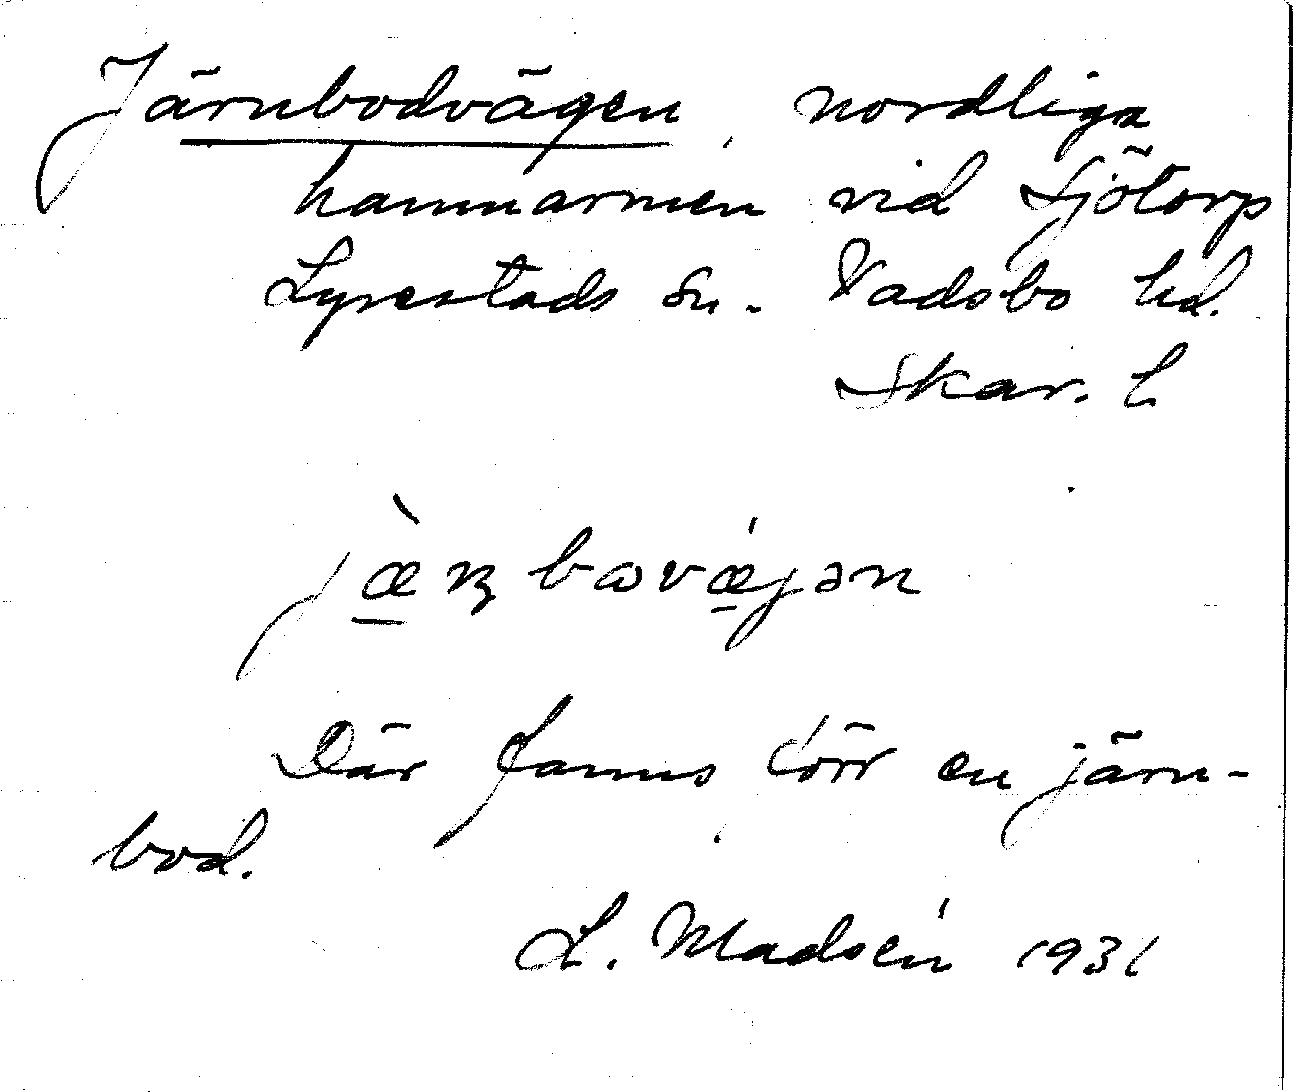 Järnbodvägen, nordliga
hamnarmen vid Sjötorp
Lyrestads sn. Vadsbo hd.
Skar. L
jæ̀ɳbɷvǽjən
Där fanns förr en järn-
bod.
L. Madsén 1931